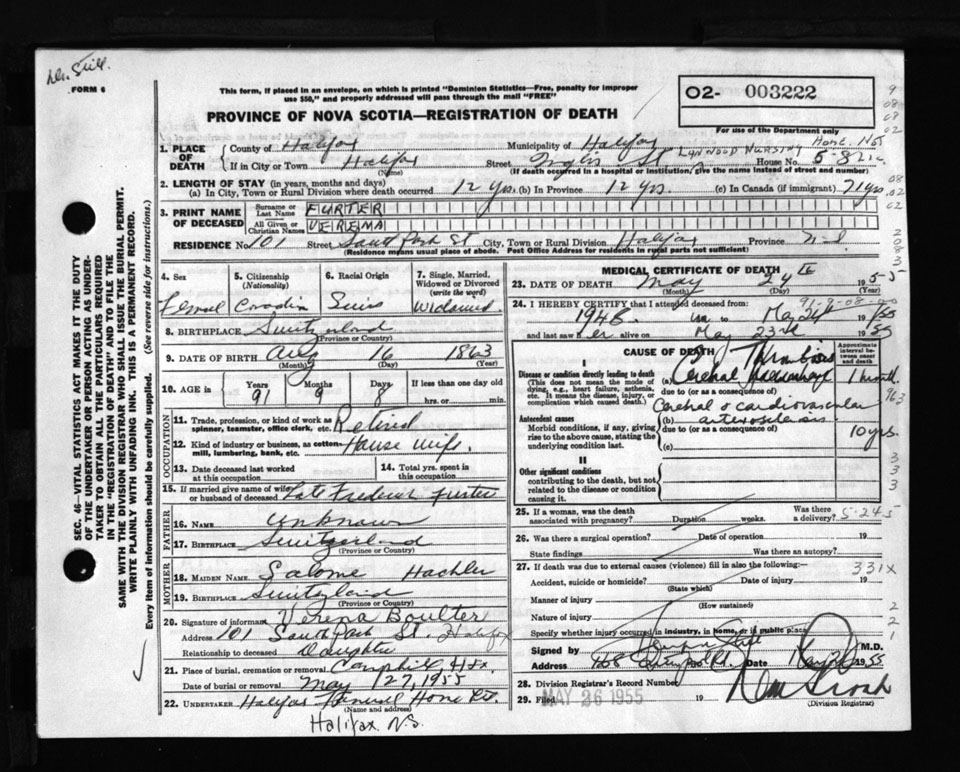 Dr. Still.
FORM 6
This form, if placed in an envelope, on which is printed "Dominion Statistics—Free, penalty for improper
use $50," and properly addressed will pass through the mail "FREE"
02- 003222
PROVINCE OF NOVA SCOTIA—REGISTRATION OF DEATH
For use of the Department only
1. PLACE OF DEATH County of Halifax Municipality of Halifax
LYNWOOD NURSING HOME
If in City or Town Halifax (Name) Street Inglis St House No. 582
(If death occurred in a hospital or institution, give the name instead of street and number)
2. LENGTH OF STAY (in years, months and days)
(a) In City, Town or Rural Division where death occurred 12 yrs. (b) In Province 12 yrs. (c) In Canada (if immigrant) 71 yrs
3. PRINT NAME OF DECEASED
Surname or Last Name FURTER
All Given or Christian Names VEREMA
RESIDENCE No. 101 Street South Park St City, Town or Rural Division Halifax Province N-S.
(Residence means usual place of abode. Post Office Address for residents in rural parts not sufficient)
4. Sex
5. Citizenship (Nationality)
6. Racial Origin
7. Single, Married, Widowed or Divorced (write the word)
Femal Swiss Widowed.
8. BIRTHPLACE Switzerland
(Province or Country)
9. DATE OF BIRTH Aug 16 1863
(Month) (Day) (Year)
10. AGE in Years 91 Months 9 Days 8 If less than one day old hrs. or min.
OCCUPATION
11. Trade, profession, or kind of work as spinner, teamster, office clerk, etc. Retired
12. Kind of industry or business, as cotton-mill, lumbering, bank, etc. House wife.
13. Date deceased last worked at this occupation
14. Total yrs. spent in this occupation
15. If married give name of wife or husband of deceased Late Frederick Furter
FATHER
16. NAME Unknown
17. BIRTHPLACE Switzerland
(Province or Country)
MOTHER
18. MAIDEN NAME Salome Hachler
19. BIRTHPLACE Switzerland
(Province or Country)
20. Signature of informant Verena Boulter
Address 101 South Park St. Halifax
Relationship to deceased Daughter
21. Place of burial, cremation or removal Camphill Hfx
Date of burial or removal May 27, 1955
22. UNDERTAKER Halifax Funeral Home Lt.
(Name and address)
Halifax N.S.
MEDICAL CERTIFICATE OF DEATH
23. DATE OF DEATH May 24 1955
(Month) (Day)
24. I HEREBY CERTIFY that I attended deceased from:
91-9-08-00
1948 to May 24th 1955
and last saw her alive on May 23rd 1955
CAUSE OF DEATH
Approximate interval between onset and death
I
Disease or condition directly leading to death
(This does not mean the mode of dying, e.g., heart failure, asthenia, etc. It means the disease, injury, or complication which caused death.)
(a) Thrombosis
Cerebral Haemorrhage 1 month
due to (or as a consequence of)
Antecedent causes
Morbid conditions, if any, giving rise to the above cause, stating the underlying condition last.
Cerebral & cardiovascular
(b) arteriosclerosis 10 yrs.
due to (or as a consequence of)
(c)
II
Other significant conditions
contributing to the death, but not related to the disease or condition causing it.
25. If a woman, was the death associated with pregnancy? Duration weeks. Was there a delivery?
5-245
26. Was there a surgical operation? Date of operation 19
State findings Was there an autopsy?
27. If death was due to external causes (violence) fill in also the following:
331X
Accident, suicide or homicide? Date of injury 19
(State which)
Manner of injury
(How sustained)
Nature of injury
Specify whether injury occurred in industry, in home, or in public place
Signed by M.D.
Address Date May 26 1955
28. Division Registrar's Record Number
29. Filed MAY 26 1955 19
(Division Registrar)
SEC. 46—VITAL STATISTICS ACT MAKES IT THE DUTY
OF THE UNDERTAKER OR PERSON ACTING AS UNDER-
TAKER TO OBTAIN ALL THE PARTICULARS REQUIRED
IN THE "REGISTRATION OF DEATH" AND TO FILE THE
SAME WITH THE DIVISION REGISTRAR WHO SHALL ISSUE THE BURIAL PERMIT.
WRITE PLAINLY WITH UNFADING INK. THIS IS A PERMANENT RECORD.
Every item of information should be carefully supplied. (See reverse side for instructions.)